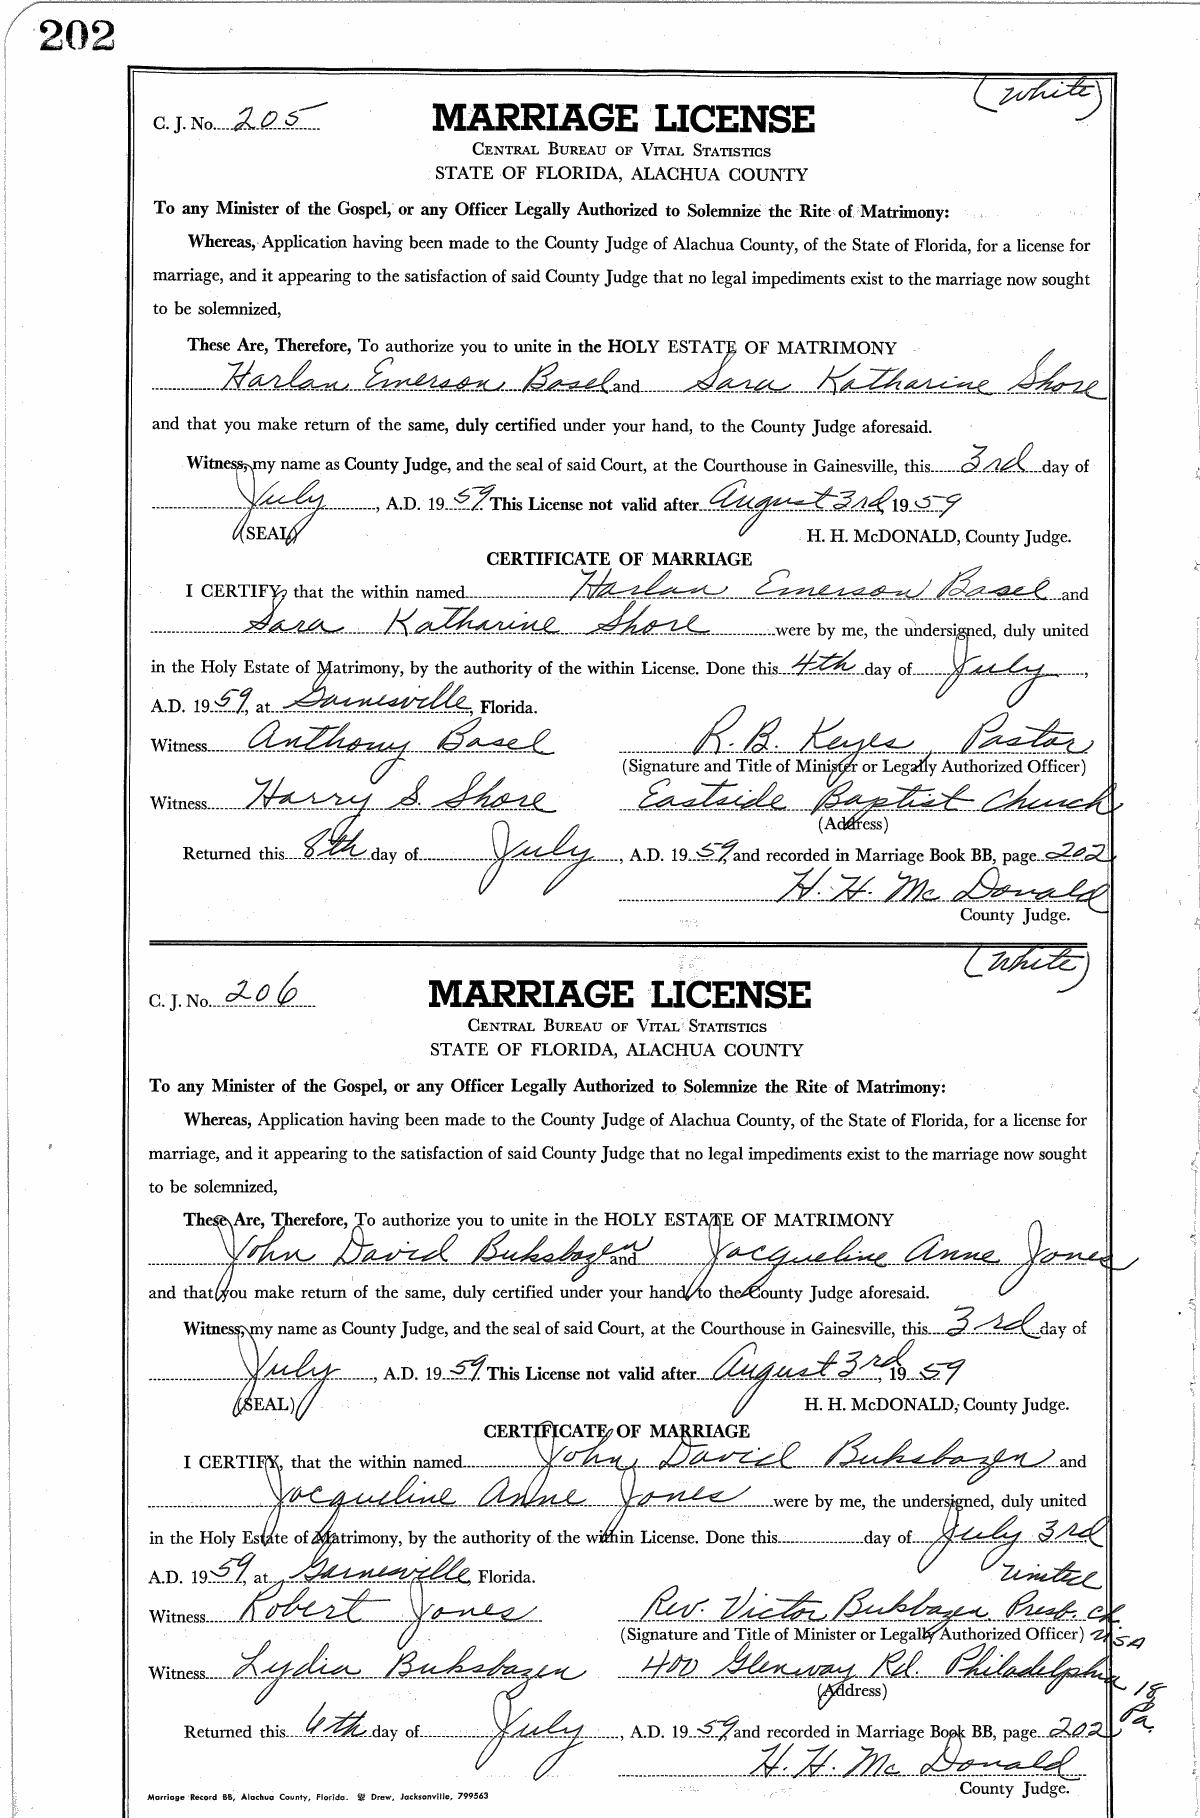 202
(White)
C. J. No. 205
MARRIAGE LICENSE
CENTRAL BUREAU OF VITAL STATISTICS
STATE OF FLORIDA, ALACHUA COUNTY
To any Minister of the Gospel, or any Officer Legally Authorized to Solemnize the Rite of Matrimony:
Whereas, Application having been made to the County Judge of Alachua County, of the State of Florida, for a license for
marriage, and it appearing to the satisfaction of said County Judge that no legal impediments exist to the marriage now sought
to be solemnized,
These Are, Therefore, To authorize you to unite in the HOLY ESTATE OF MATRIMONY
Harlan Emerson Basel and Sara Katharine Shore
and that you make return of the same, duly certified under your hand, to the County Judge aforesaid.
Witness, my name as County Judge, and the seal of said Court, at the Courthouse in Gainesville, this 3rd day of
July, A.D. 1959. This License not valid after August 3rd, 1959
(SEAL) H. H. McDONALD, County Judge.
CERTIFICATE OF MARRIAGE
I CERTIFY, that the within named Harlan Emerson Basel and
Sara Katharine Shore were by me, the undersigned, duly united
in the Holy Estate of Matrimony, by the authority of the within License. Done this 4th day of July,
A.D. 1959, at Gainesville, Florida.
Witness Anthony Basel R. B. Keyes, Pastor
(Signature and Title of Minister or Legally Authorized Officer)
Witness Harry S. Shore Eastside Baptist Church
(Address)
Returned this 8th day of July, A.D. 1959, and recorded in Marriage Book BB, page 202
H. H. McDonald
County Judge.
(White)
C. J. No. 206
MARRIAGE LICENSE
CENTRAL BUREAU OF VITAL STATISTICS
STATE OF FLORIDA, ALACHUA COUNTY
To any Minister of the Gospel, or any Officer Legally Authorized to Solemnize the Rite of Matrimony:
Whereas, Application having been made to the County Judge of Alachua County, of the State of Florida, for a license for
marriage, and it appearing to the satisfaction of said County Judge that no legal impediments exist to the marriage now sought
to be solemnized,
These Are, Therefore, To authorize you to unite in the HOLY ESTATE OF MATRIMONY
John David Buksbazen and Jacqueline Anne Jones
and that you make return of the same, duly certified under your hand, to the County Judge aforesaid.
Witness, my name as County Judge, and the seal of said Court, at the Courthouse in Gainesville, this 3rd day of
July, A.D. 1959. This License not valid after August 3rd, 1959
(SEAL) H. H. McDONALD, County Judge.
CERTIFICATE OF MARRIAGE
I CERTIFY, that the within named John David Buksbazen and
Jacqueline Anne Jones were by me, the undersigned, duly united
in the Holy Estate of Matrimony, by the authority of the within License. Done this day of July 3rd
A.D. 1959, at Gainesville, Florida. United
Witness Robert Jones Rev. Victor Bukbazen Presb. Ch.
(Signature and Title of Minister or Legally Authorized Officer) USA
Witness Lydia Buksbazen 400 Glenway Rd. Philadelphia 18
(Address) Pa.
Returned this 6th day of July, A.D. 1959, and recorded in Marriage Book BB, page 202
H. H. McDonald
County Judge.
Marriage Record BB, Alachua County, Florida. Drew, Jacksonville, 799563